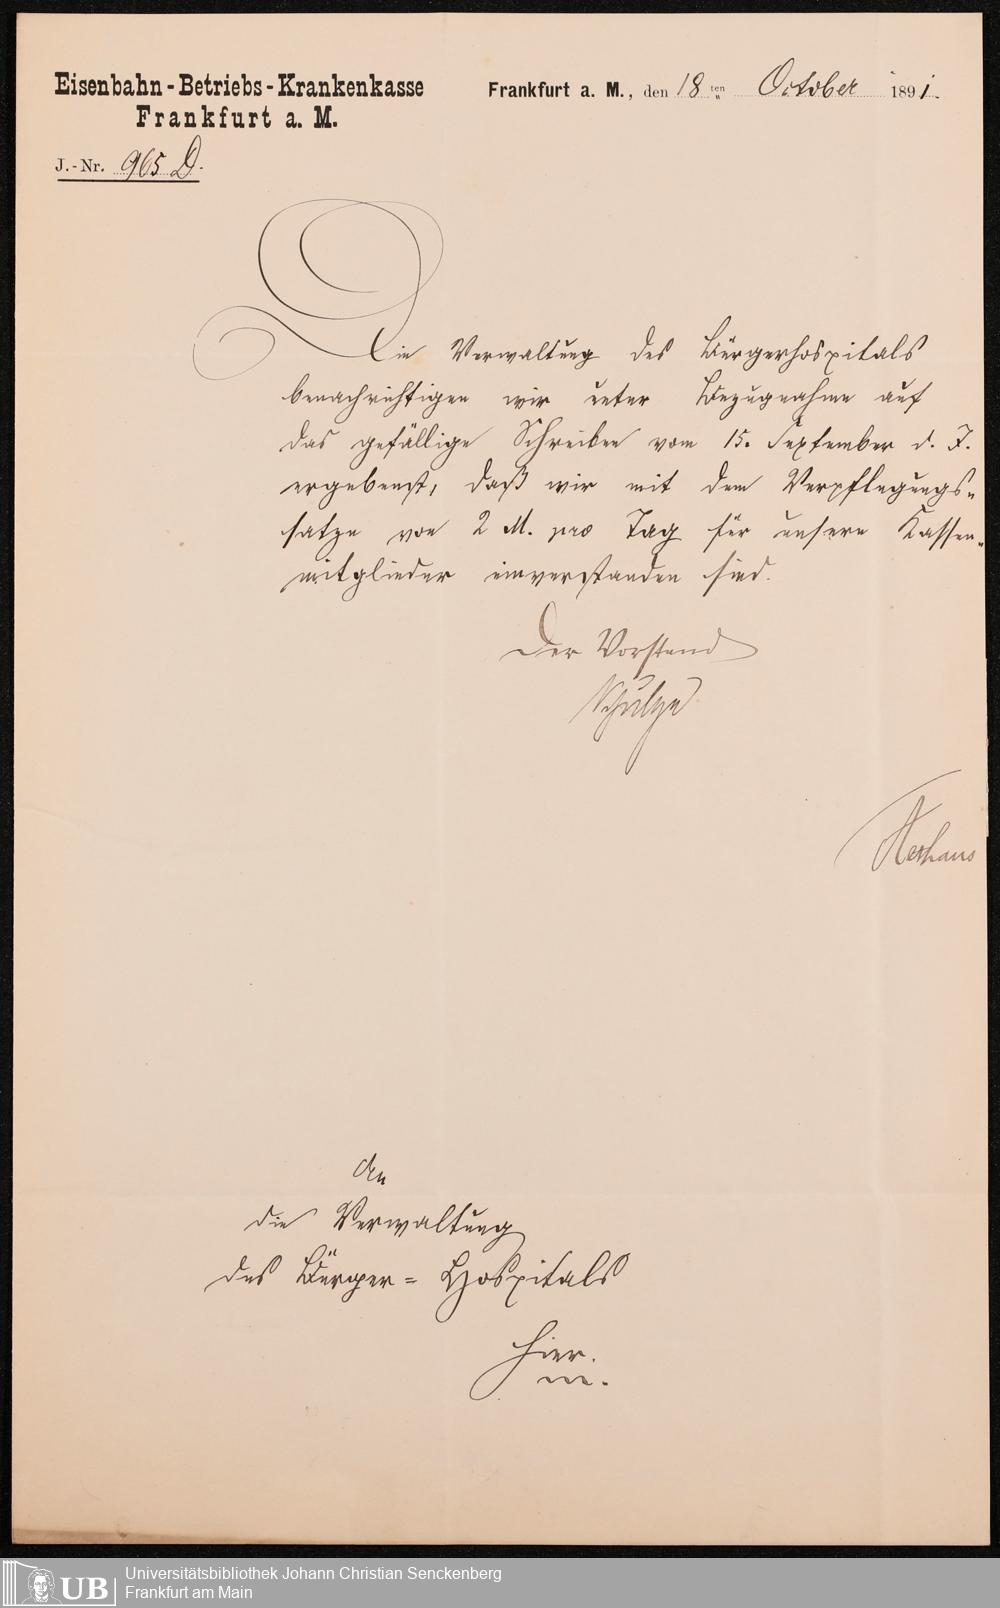 Eisenbahn-Betriebs-Krankenkasse
Frankfurt a. M.
J.-Nr. 965 D.
Frankfurt a. M., den 18ten October 1891.
Die Verwaltung des Bürgerhospitals
benachrichtigen wir unter Bezugnahme auf
das gefällige Schreiben vom 15. September d. J.
ergebenst, daß wir mit dem Verpflegungs-
satze von 2 M. pro Tag für unsere Kassen-
mitglieder einverstanden sind.
Der Vorstand
Schulze
An
die Verwaltung
des Bürger-Hospitals
hier.
UB
Universitätsbibliothek Johann Christian Senckenberg
Frankfurt am Main